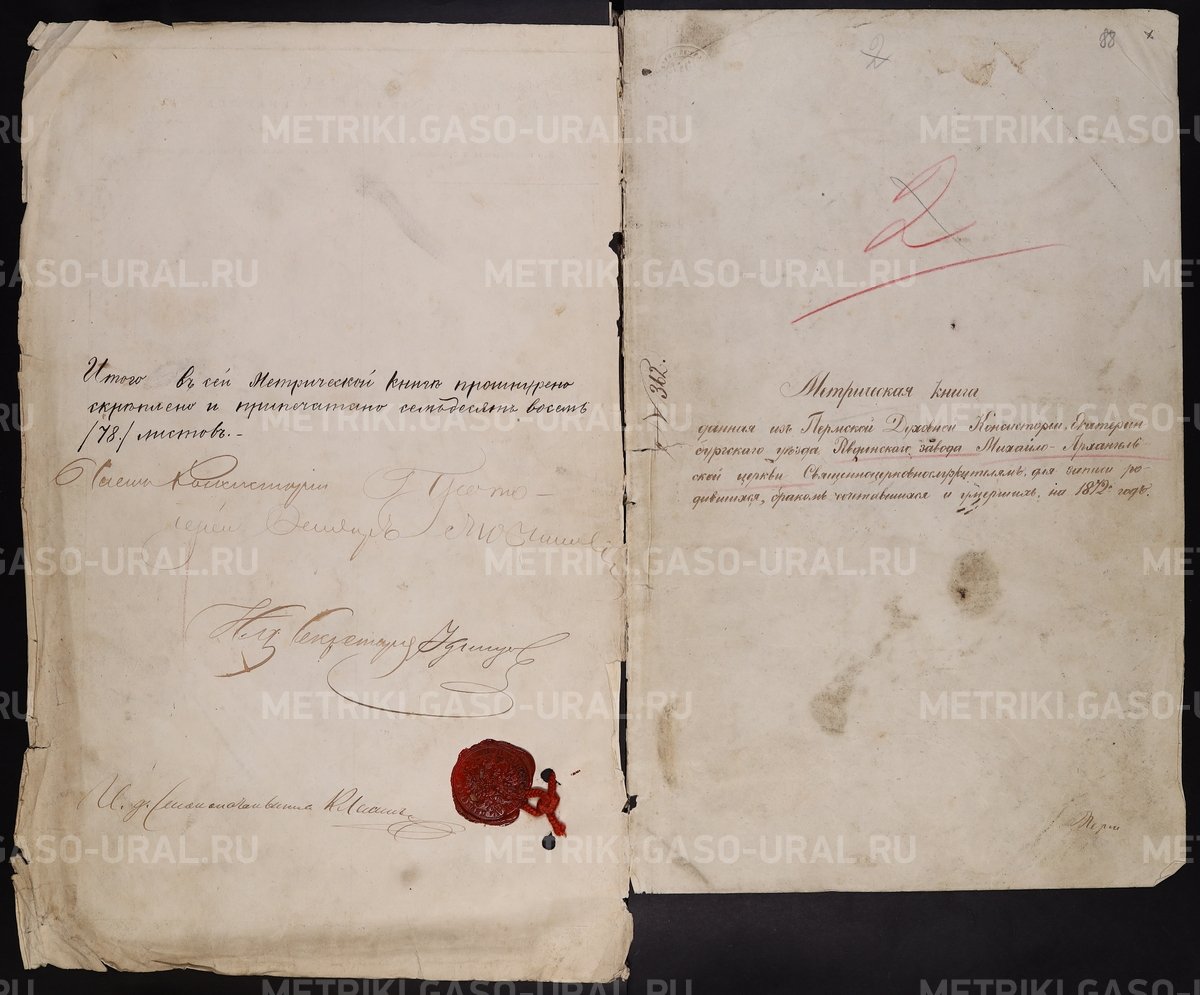 Итого въ сей Метрической книгѣ прошнурено
скрѣплено и припечатано семьдесятъ восемь
/78./ листовъ.-
Членъ Консисторiи Прото-
iерей
Секретарь
И. д. Столоначальника
2
88
2
№ 362.
Метрическая книга
данная изъ Пермской Духовной Консисторiи, Екатерин
бургскаго уѣзда завода Михайло-Архангель-
ской церкви Священноцерковнослужителямъ, для записи ро-
дившихся, бракомъ сочетавшихся и умершихъ, на 1872й годъ.
METRIKI.GASO-URAL.RU